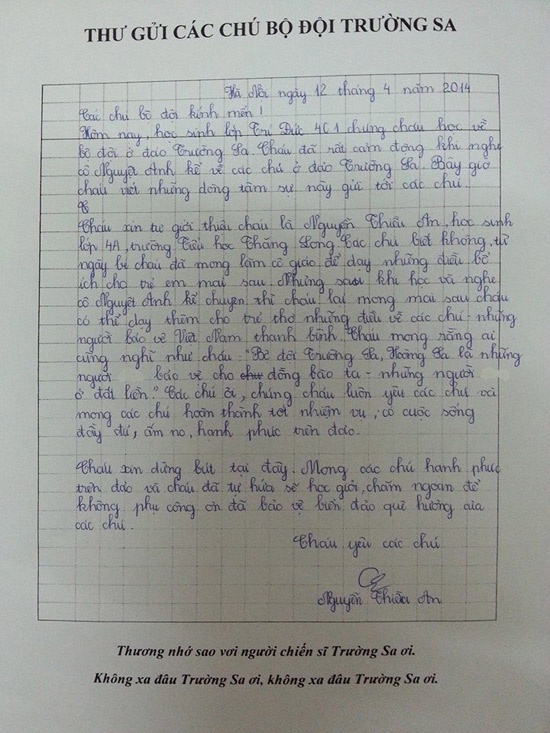 THƯ GỬI CÁC CHÚ BỘ ĐỘI TRƯỜNG SA
Hà Nội ngày 12 tháng 4 năm 2014
Các chú bộ đội kính mến!
Hôm nay, học sinh lớp Trí Đức 4C1 chúng cháu học về
bộ đội ở đảo Trường Sa. Cháu đã rất cảm động khi nghe
cô Nguyệt Anh kể về các chú ở đảo Trường Sa. Bây giờ
cháu viết những dòng tâm sự này gửi tới các chú.
Cháu xin tự giới thiệu cháu là Nguyễn Thiều An, học sinh
lớp 4A, trường Tiểu học Thăng Long. Các chú biết không, từ
ngày bé cháu đã mong làm cô giáo để dạy những điều bổ
ích cho trẻ em mai sau. Nhưng sau khi học và nghe
cô Nguyệt Anh kể chuyện thì cháu lại mong mai sau cháu
có thể dạy thêm cho trẻ thơ những điều về các chú - những
người bảo vệ Việt Nam thanh bình. Cháu mong rằng ai
cũng nghĩ như cháu: "Bộ đội Trường Sa, Hoàng Sa là những
người bảo vệ cho đồng bào ta - những người
ở đất liền." Các chú ơi, chúng cháu luôn yêu các chú và
mong các chú hoàn thành tốt nhiệm vụ, có cuộc sống
đầy đủ, ấm no, hạnh phúc trên đảo.
Cháu xin dừng bút tại đây. Mong các chú hạnh phúc
trên đảo và cháu đã tự hứa sẽ học giỏi, chăm ngoan để
không phụ công ơn đã bảo vệ biển đảo quê hương của
các chú.
Cháu yêu các chú
Nguyễn Thiều An
Thương nhớ sao vơi người chiến sĩ Trường Sa ơi.
Không xa đâu Trường Sa ơi, không xa đâu Trường Sa ơi.